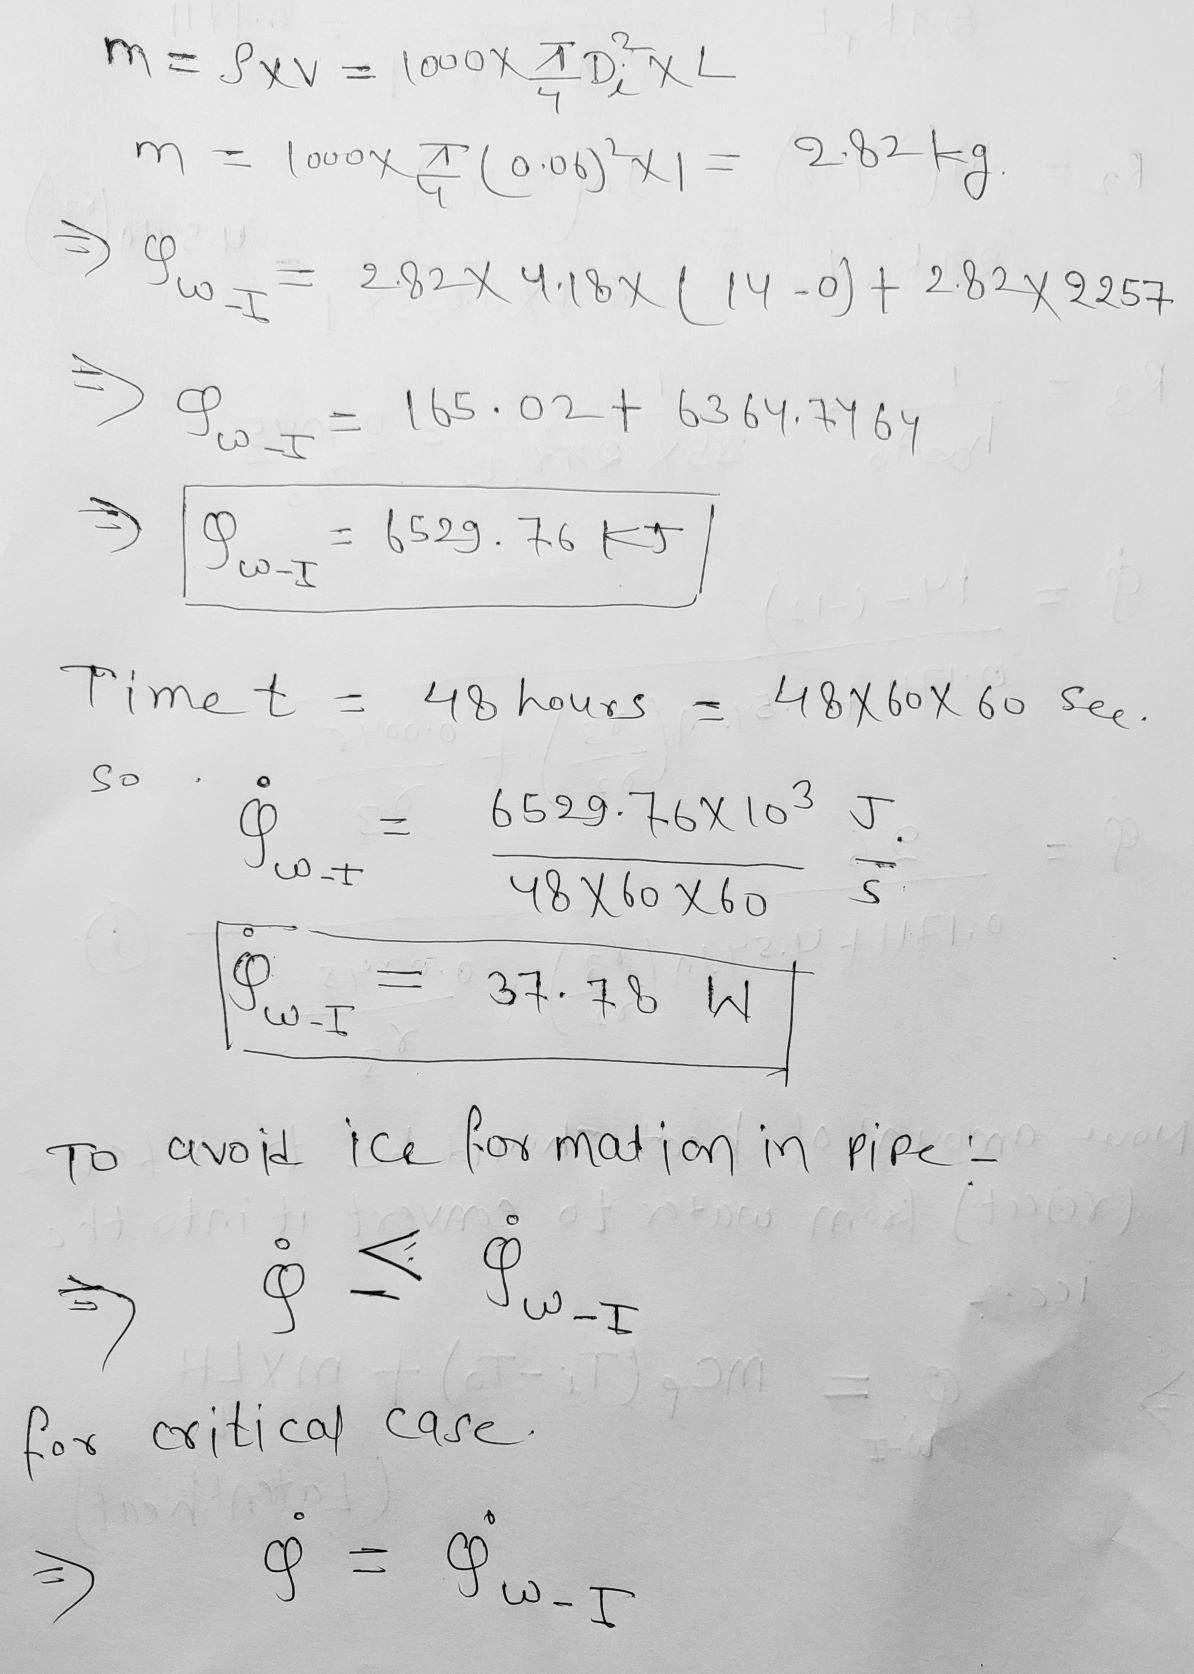 m = ρ×V = 1000 × π/4 Di² × L
m = 1000 × π/4 (0.06)² × 1 = 2.82 kg.
⇒ Qw-I = 2.82 × 4.18 × (14-0) + 2.82 × 2257
⇒ Qw-I = 165.02 + 6364.7464
⇒ Qw-I = 6529.76 KJ
Time t = 48 hours = 48×60×60 sec.
so . Q̇w-I = 6529.76×10³ / 48×60×60 J/s.
Q̇w-I = 37.78 W
To avoid ice formation in pipe :-
⇒ Q̇ ≤ Q̇w-I
for critical case.
⇒ Q̇ = Q̇w-I